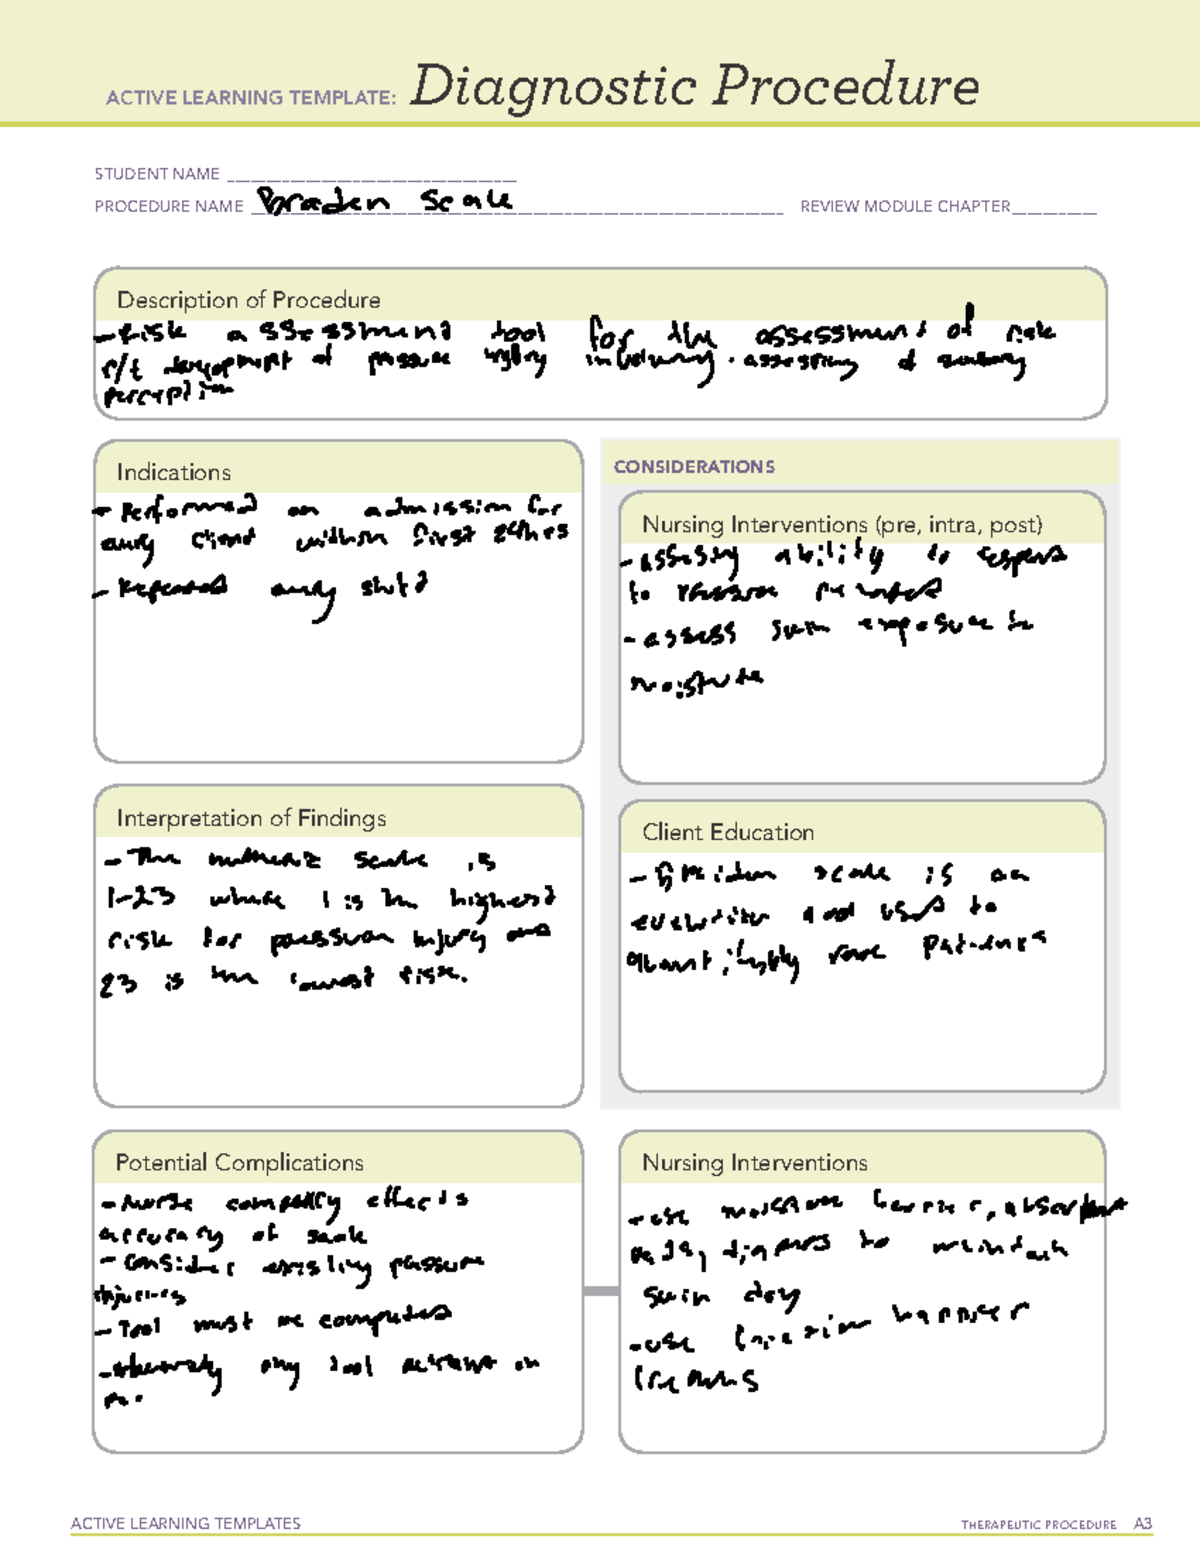 ACTIVE LEARNING TEMPLATE: Diagnostic Procedure
STUDENT NAME
PROCEDURE NAME Braden Scale REVIEW MODULE CHAPTER
Description of Procedure
- Risk assessment tool for the assessment of risk
r/t development of pressure injury involving . assessing of sensory
perception
Indications
- Performed on admission for
any client within first 24hrs
- Repeated every shift
CONSIDERATIONS
Nursing Interventions (pre, intra, post)
- assessing ability to respond
to pressure related
- assess skin exposure to
moisture
Interpretation of Findings
- The numeric scale is
1-23 where 1 is the highest
risk for pressure injury and
23 is the lowest risk.
Client Education
- Braden scale is an
evaluation tool used to
quantifiably rate patients
Potential Complications
- Nurse effects
accuracy of scale
- consider existing pressure
injuries
- Tool must be completed
any tool on
Nursing Interventions
- use moisture barrier, absorbent
pads, diapers to maintain
skin dry
- use barrier
creams
ACTIVE LEARNING TEMPLATES THERAPEUTIC PROCEDURE A3